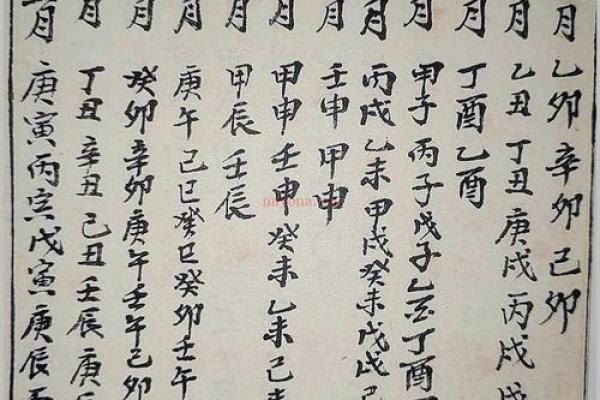 月乙卯辛卯己卯
月乙丑丁丑庚戌丙戌戊
月丁酉乙酉
月甲子丙子戊子乙亥丁酉
月丙戌乙未甲戌癸未戊戌己
月壬申甲申
月甲申壬申癸未乙未己未
月甲辰壬辰
月庚午己巳癸巳癸卯壬午
月癸卯辛卯庚午壬午己卯
月丁丑辛丑己丑壬辰庚
月庚寅丙寅戊寅庚辰